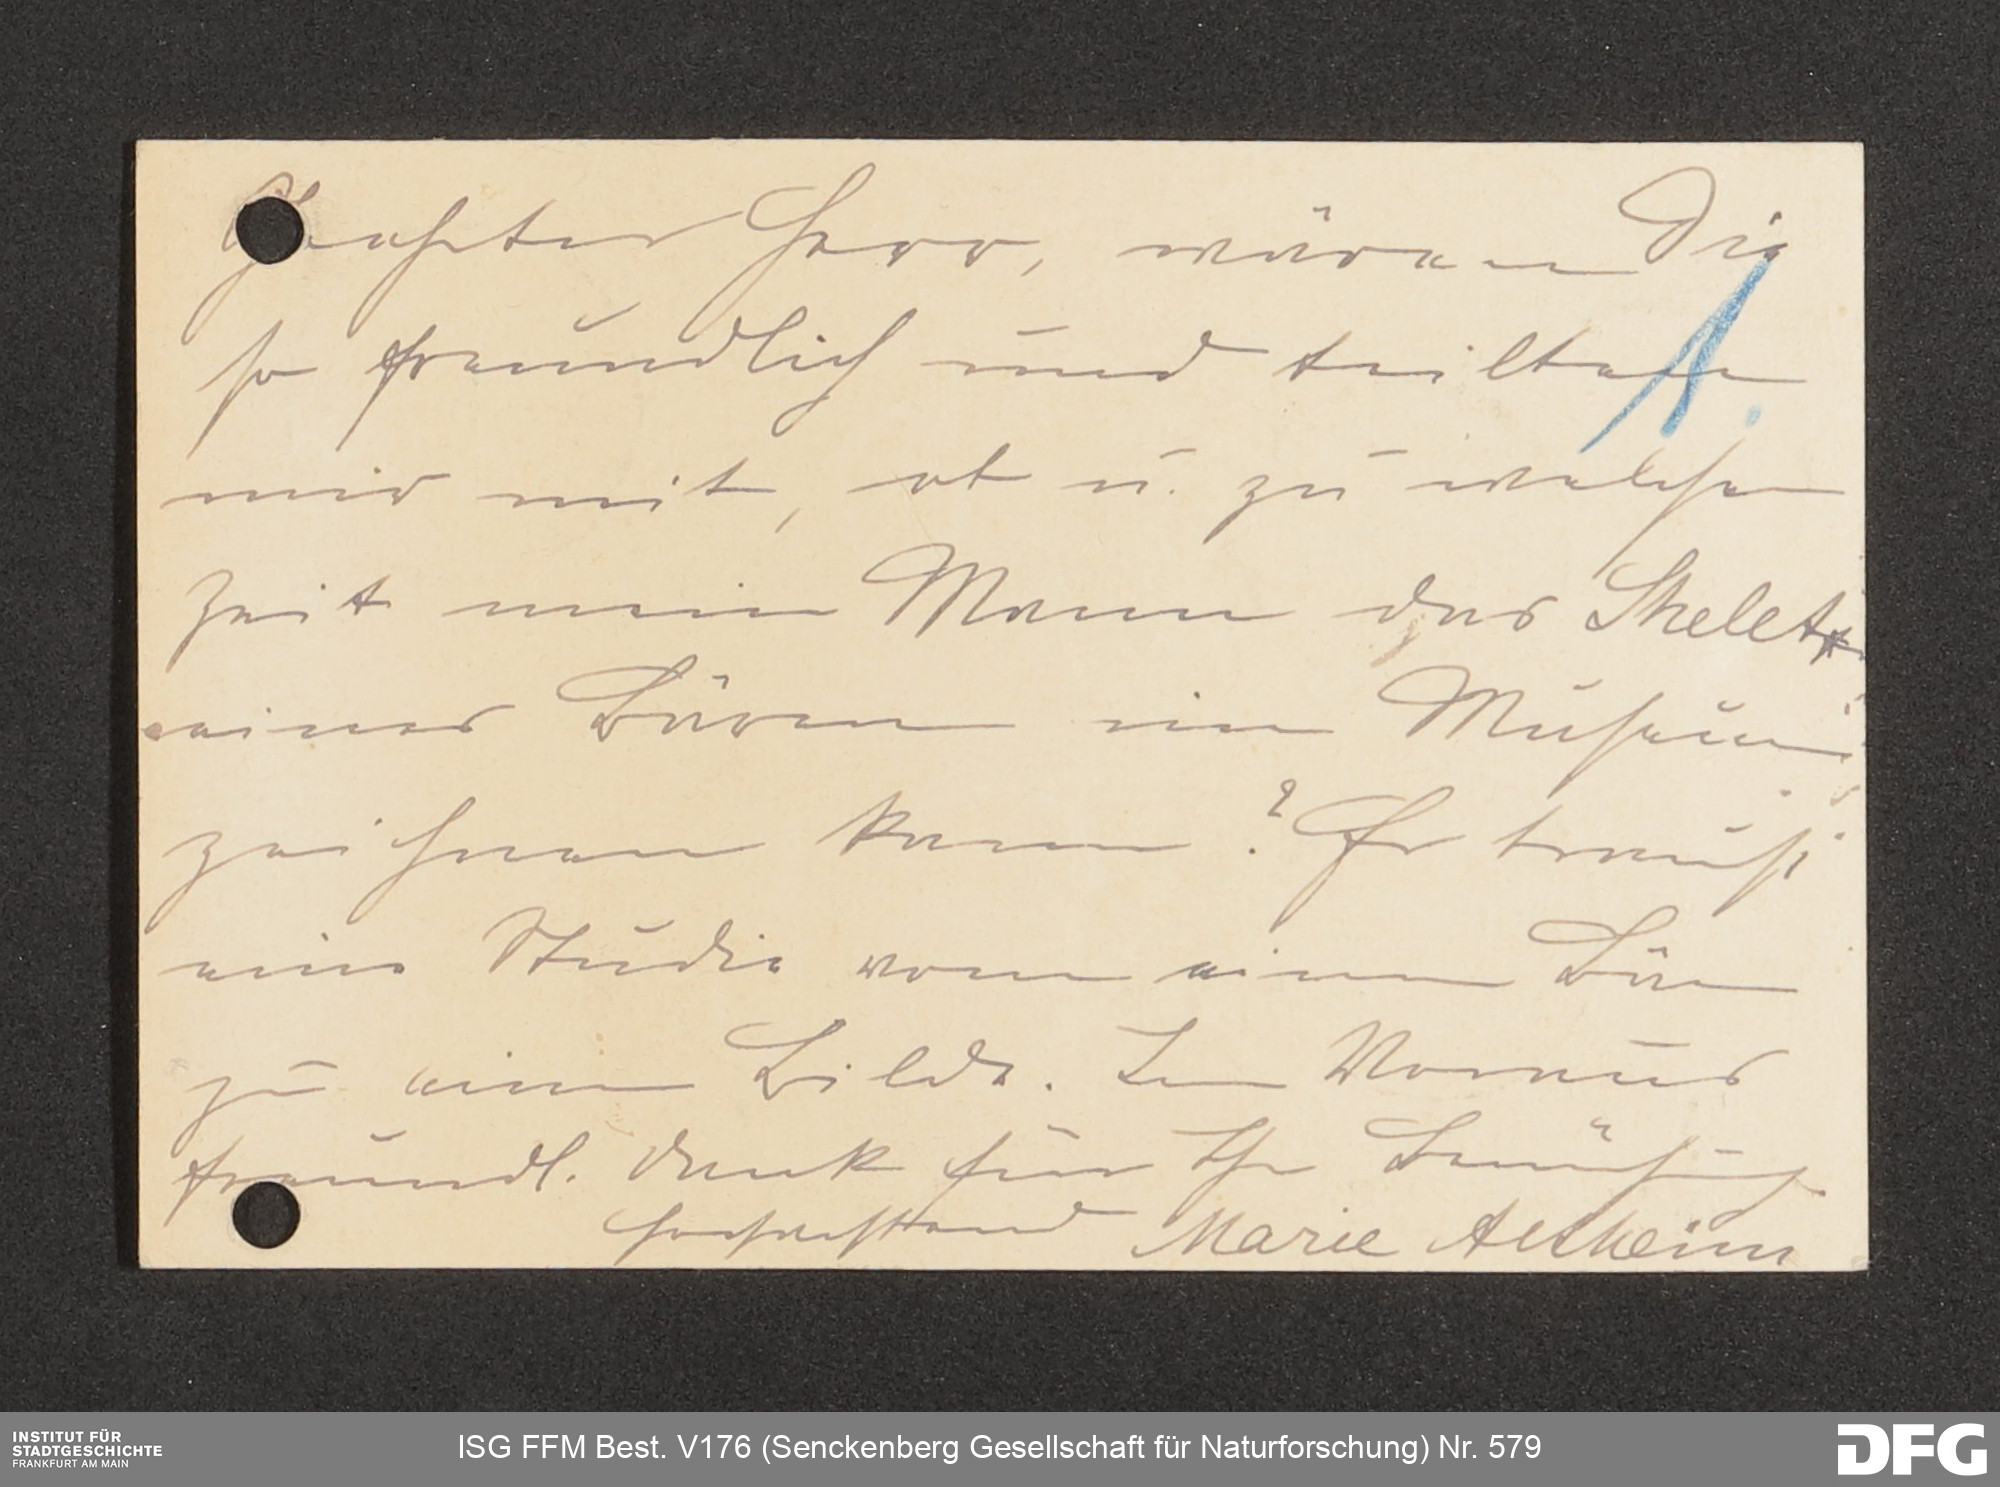 Geehrter Herr, wären Sie
so freundlich und teilten
mir mit, ob u. zu welcher
Zeit mein Mann das Skelett
eines Bären im Museum
zeichnen kann? Er braucht
eine Studie von einem Bären
zu einem Bilde. Im Voraus
freundl. Dank für Ihre Bemühung
Hochachtend Marie Altheim
INSTITUT FÜR
STADTGESCHICHTE
FRANKFURT AM MAIN
ISG FFM Best. V176 (Senckenberg Gesellschaft für Naturforschung) Nr. 579
DFG